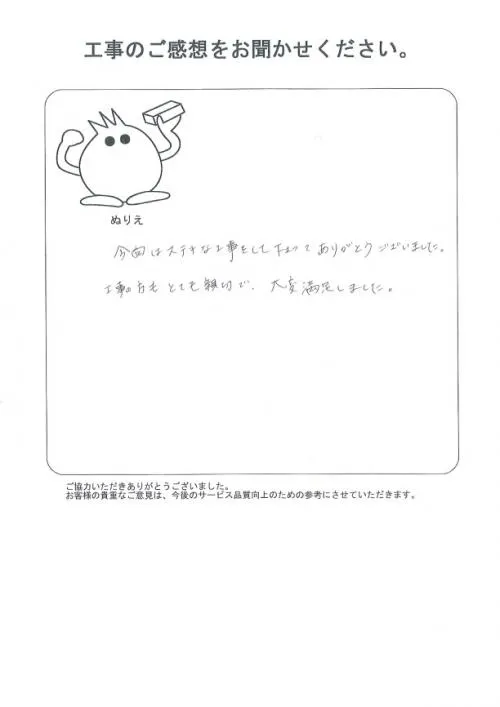 工事のご感想をお聞かせください。
ぬりえ
今回はステキな工事をして下さって ありがとうございました。
工事の方も とても親切で、大変満足しました。
ご協力いただきありがとうございました。
お客様の貴重なご意見は、今後のサービス品質向上のための参考にさせていただきます。